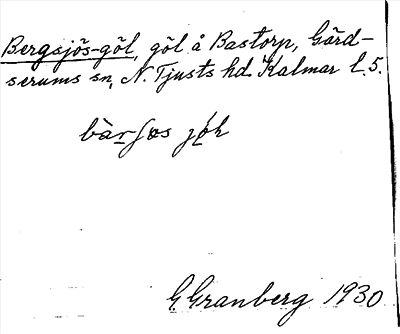 Bergsjös-göl, göl å Bastorp, Gärd-
serums sn, N. Tjusts hd. Kalmar l. 5.
G Granberg 1930